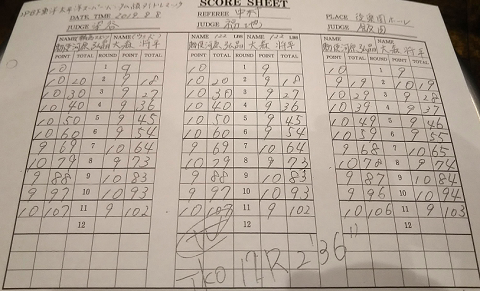 SCORE SHEET
DATE TIME 2019 8.8 REFEREE 中村 PLACE 後楽園ホール
JUDGE JUDGE 福地 JUDGE 飯田
NAME NAME NAME LBS NAME LBS NAME NAME
勅使河原弘晶 大森 将平 勅使河原弘晶 大森 将平 勅使河原弘晶 大森 将平
POINT TOTAL ROUND POINT TOTAL POINT TOTAL ROUND POINT TOTAL POINT TOTAL ROUND POINT TOTAL
10 1 9 10 1 9 10 1 9
10 20 2 9 18 10 20 2 9 18 9 19 2 10 19
10 30 3 9 27 10 30 3 9 27 10 29 3 9 28
10 40 4 9 36 10 40 4 9 36 10 39 4 9 37
10 50 5 9 45 10 50 5 9 45 10 49 5 9 46
10 60 6 9 54 10 60 6 9 54 10 59 6 9 55
9 69 7 10 64 9 69 7 10 64 9 68 7 10 65
10 79 8 9 73 10 79 8 9 73 10 78 8 9 74
9 88 9 10 83 9 88 9 10 83 9 87 9 10 84
9 97 10 10 93 9 97 10 10 93 9 96 10 10 94
10 107 11 9 102 10 107 11 9 102 10 106 11 9 103
12 12 12
TKO 12R 2'36"